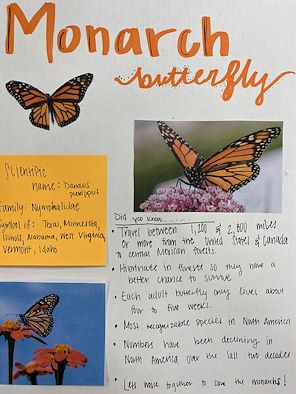 Monarch
butterfly
Scientific
name: Danaus
plexippus
Family: Nymphalidae
Symbol of: Texas, Minnesota,
Illinois, Alabama, West Virginia,
Vermont, Idaho
Did you know........
• Travel between 1,200 & 2,800 miles
or more from the United States & Canada
to central Mexican forests.
• Hibernate in forests so they have a
better chance to survive.
• Each adult butterfly only lives about
four to five weeks.
• Most recognizable species in North America
• Numbers have been declining in
North America over the last two decades
• Lets move together to save the monarchs!